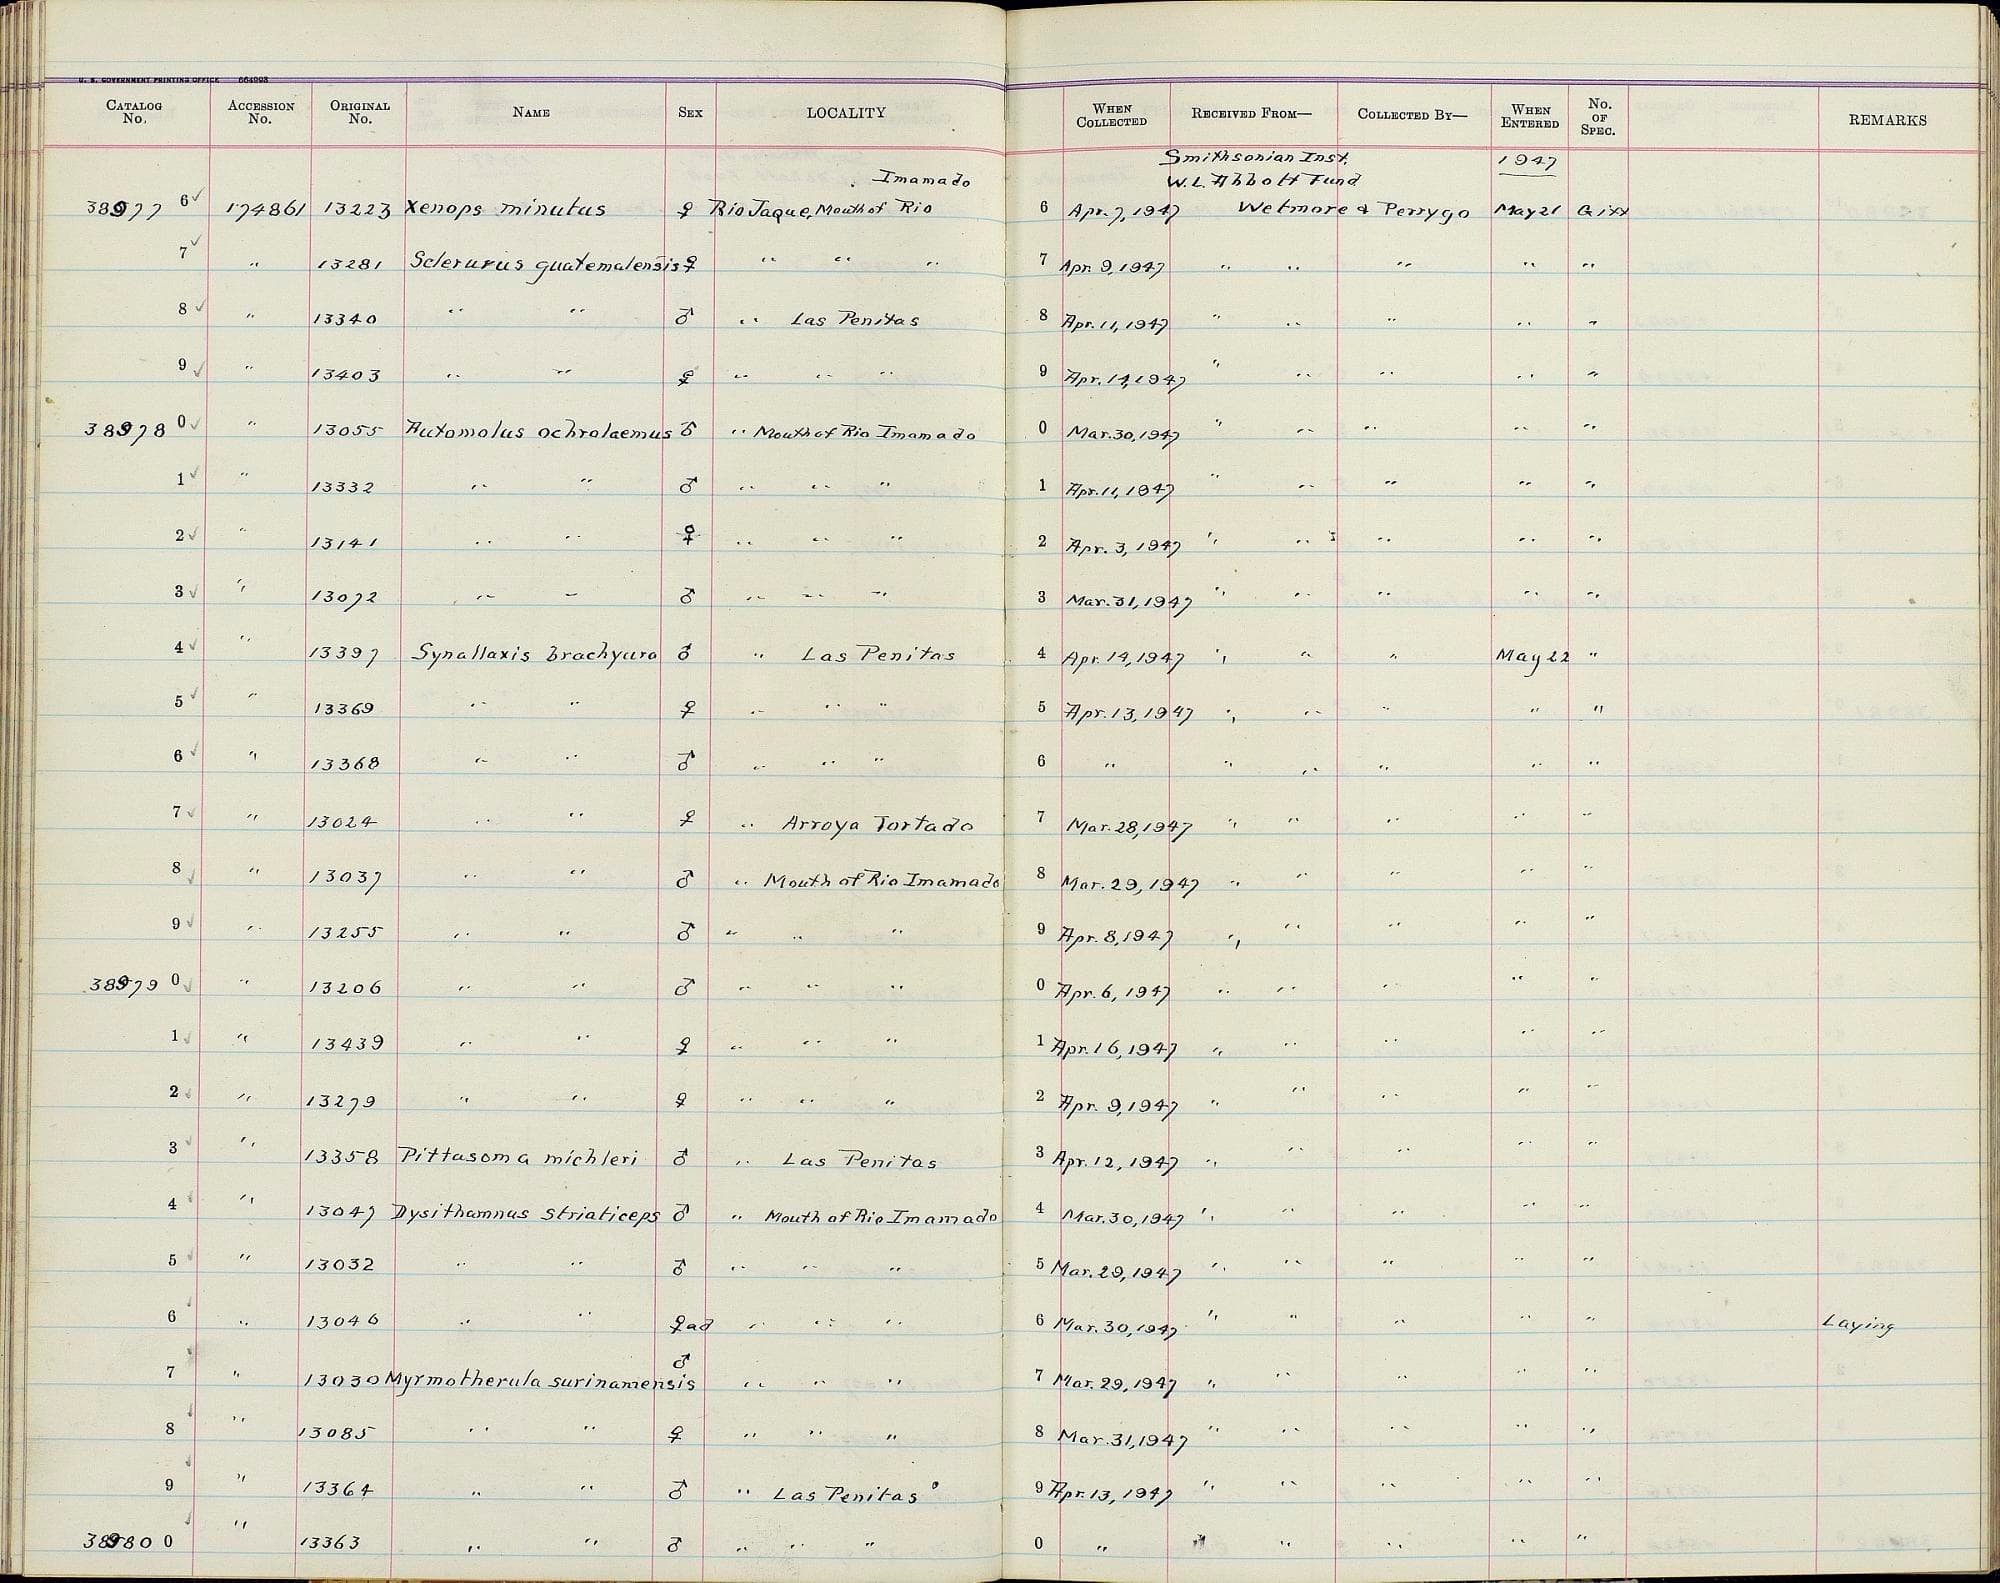 U. S. GOVERNMENT PRINTING OFFICE 664998
CATALOG No. ACCESSION No. ORIGINAL No. NAME SEX LOCALITY WHEN COLLECTED RECEIVED FROM— COLLECTED BY— WHEN ENTERED No. OF SPEC. REMARKS
Smithsonian Inst. 1947
Imamado W. L. Abbott Fund
38977 6 ✓ 174861 13223 Xenops minutus ♀ Rio Jaque, Mouth of Rio 6 Apr. 7, 1947 Wetmore & Perrygo May 21
7 ✓ " 13281 Sclerurus guatemalensis ♀ " " " 7 Apr. 9, 1947 " " " " "
8 ✓ " 13340 " " ♂ " Las Penitas 8 Apr. 11, 1947 " " " " "
9 ✓ " 13403 " " ♀ " " " 9 Apr. 14, 1947 " " " " "
38978 0 ✓ " 13055 Automolus ochrolaemus ♂ " Mouth of Rio Imamado 0 Mar. 30, 1947 " " " " "
1 ✓ " 13332 " " ♂ " " " 1 Apr. 11, 1947 " " " " "
2 ✓ " 13141 " " ♀ " " " 2 Apr. 3, 1947 " " " " "
3 ✓ " 13072 " " ♂ " " " 3 Mar. 31, 1947 " " " " "
4 ✓ " 13397 Synallaxis brachyura ♂ " Las Penitas 4 Apr. 14, 1947 " " " May 22 "
5 ✓ " 13369 " " ♀ " " " 5 Apr. 13, 1947 " " " " "
6 ✓ " 13368 " " ♂ " " " 6 " " " " " "
7 ✓ " 13024 " " ♀ " Arroya Tortado 7 Mar. 28, 1947 " " " " "
8 ✓ " 13037 " " ♂ " Mouth of Rio Imamado 8 Mar. 29, 1947 " " " " "
9 ✓ " 13255 " " ♂ " " " 9 Apr. 8, 1947 " " " " "
38979 0 ✓ " 13206 " " ♂ " " " 0 Apr. 6, 1947 " " " " "
1 ✓ " 13439 " " ♀ " " " 1 Apr. 16, 1947 " " " " "
2 ✓ " 13279 " " ♀ " " " 2 Apr. 9, 1947 " " " " "
3 ✓ " 13358 Pittasoma michleri ♂ " Las Penitas 3 Apr. 12, 1947 " " " " "
4 ✓ " 13047 Dysithamnus striaticeps ♂ " Mouth of Rio Imamado 4 Mar. 30, 1947 " " " " "
5 " 13032 " " ♂ " " " 5 Mar. 29, 1947 " " " " "
6 ✓ " 13046 " " ♀ad " " " 6 Mar. 30, 1947 " " " " " Laying
7 ✓ " 13030 Myrmotherula surinamensis ♂ " " " 7 Mar. 29, 1947 " " " " "
8 ✓ " 13085 " " ♀ " " " 8 Mar. 31, 1947 " " " " "
9 ✓ " 13364 " " ♂ " Las Penitas 9 Apr. 13, 1947 " " " " "
38980 0 ✓ " 13363 " " ♂ " " " 0 " " " " " "